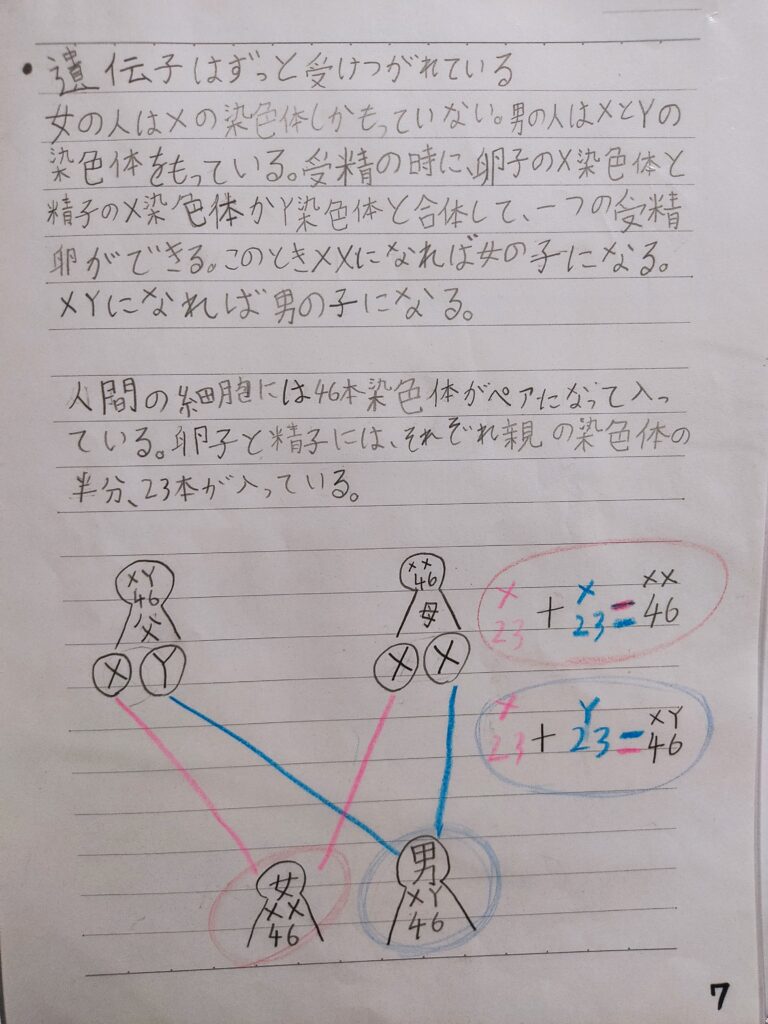 ・遺伝子はずっと受けつがれている
女の人はXの染色体しかもっていない。男の人はXとYの
染色体をもっている。受精の時に、卵子のX染色体と
精子のX染色体かY染色体と合体して、一つの受精
卵ができる。このときXXになれば女の子になる。
XYになれば男の子になる。
人間の細胞には46本染色体がペアになって入っ
ている。卵子と精子には、それぞれ親の染色体の
半分、23本が入っている。
XY
46
父
X Y
XX
46
母
X X
X X XX
23 + 23 = 46
X Y XY
23 + 23 = 46
女
XX
46
男
XY
46
7